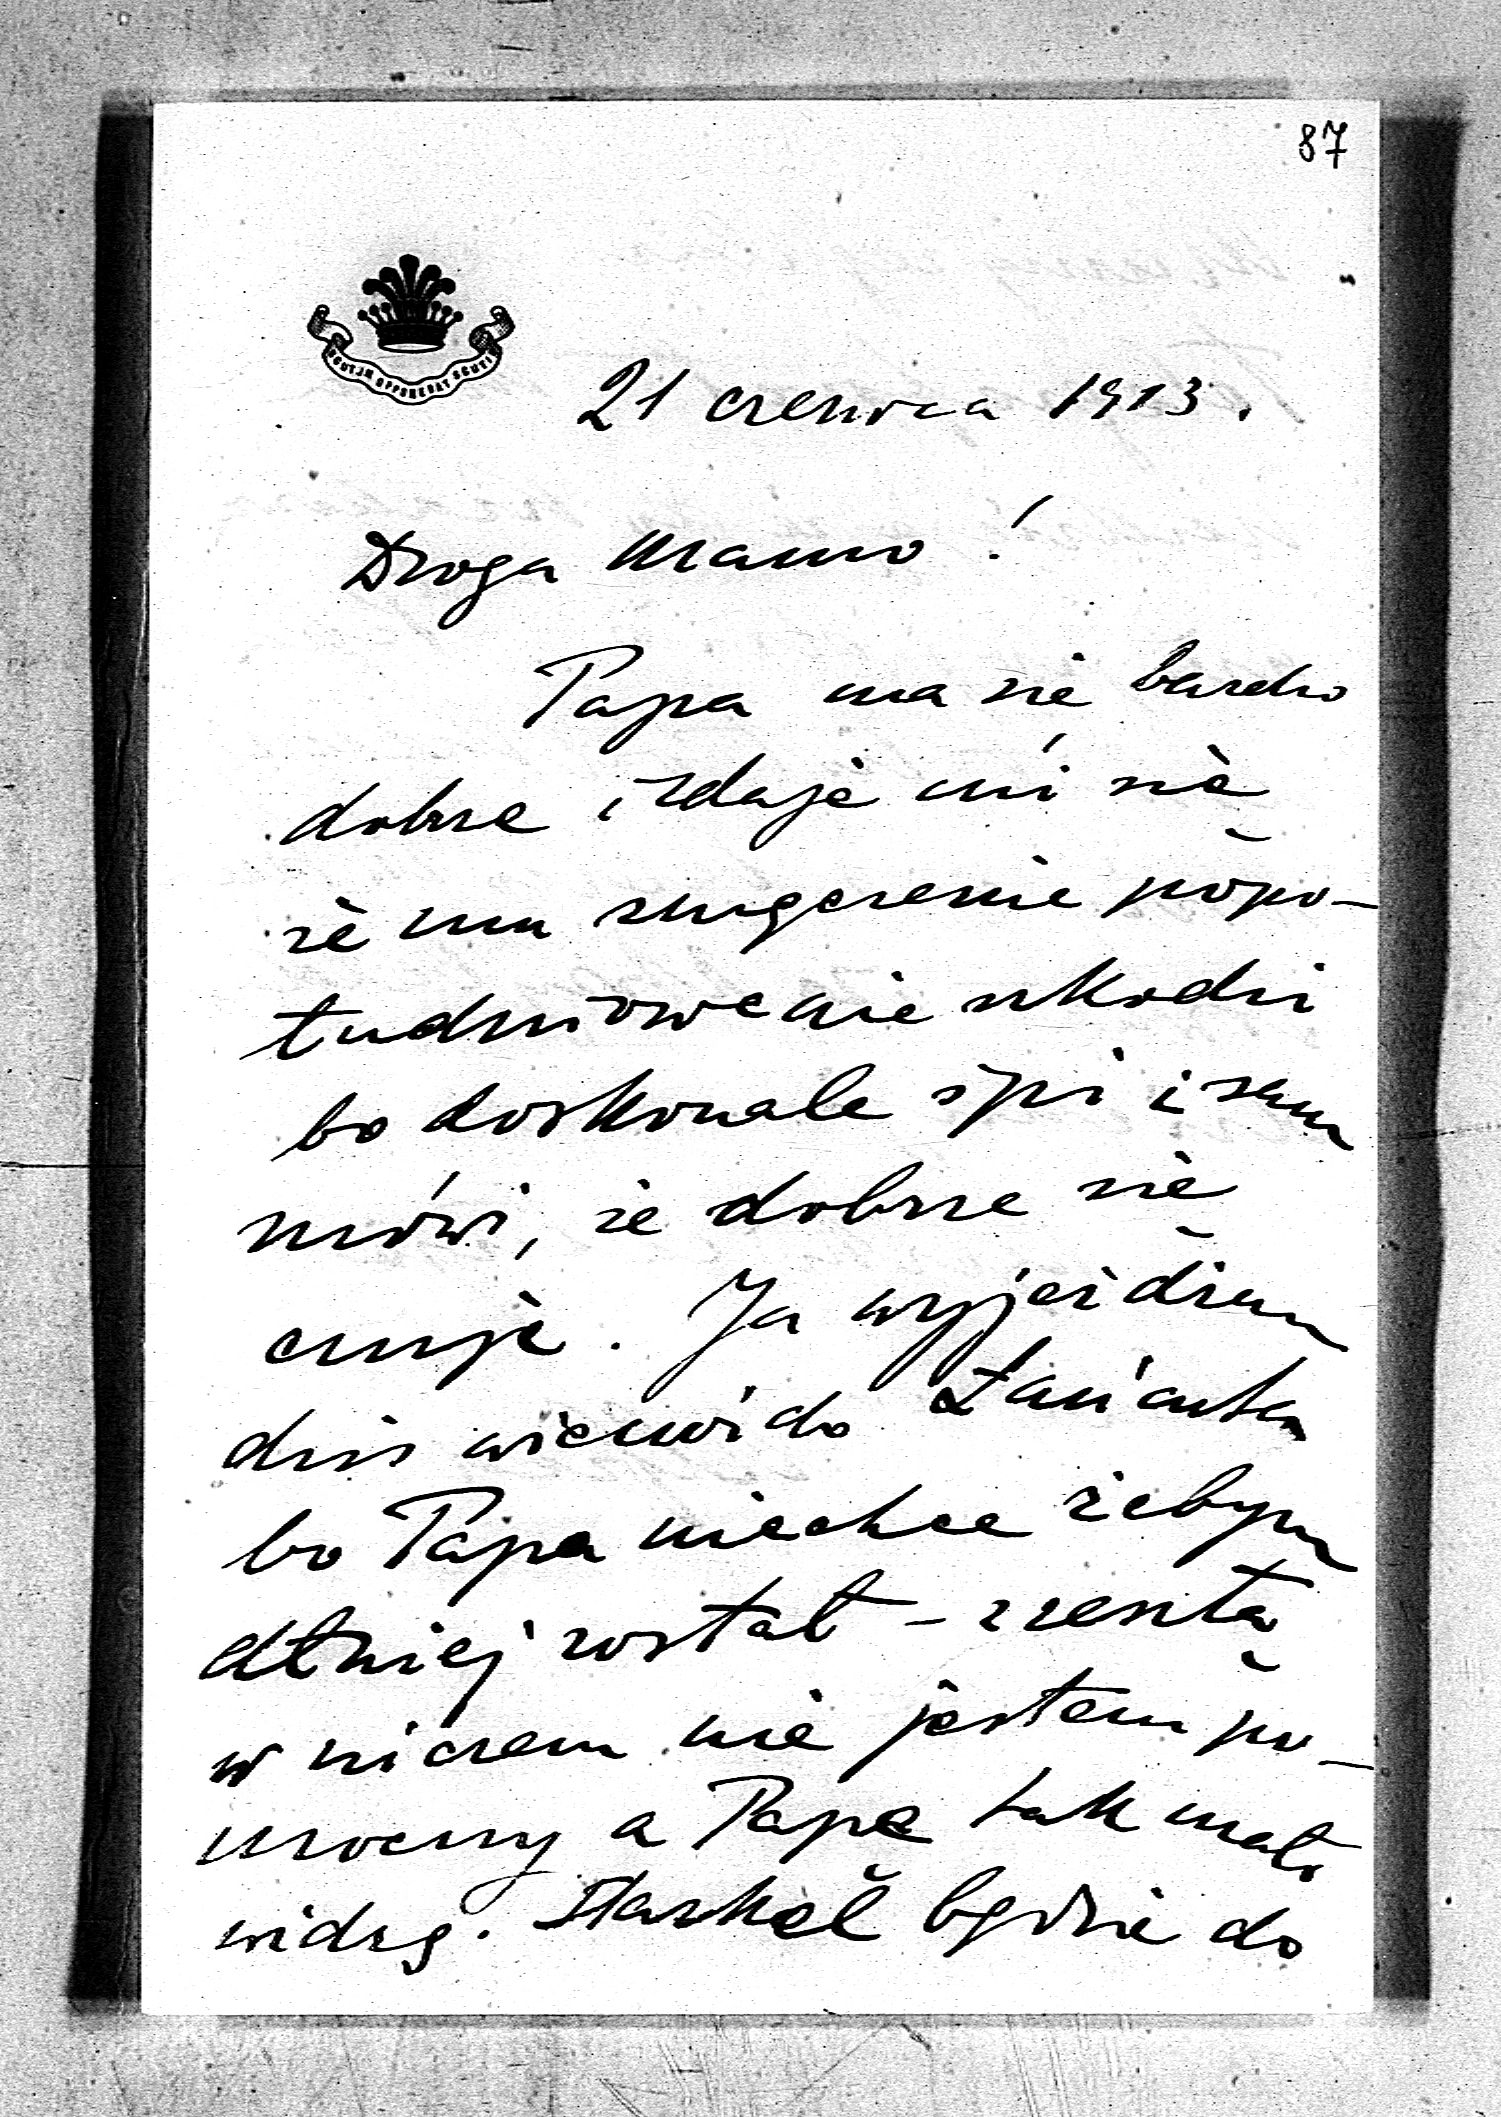 87
SCUTUM OPPONEBAT SCUTIS
21 czerwca 1913.
Droga Mamo!
Papa ma się bardzo
dobrze i zdaje mi się
że mu zmęczenie popo-
łudniowe nie szkodzi
bo doskonale śpi i sam
mówi, że dobrze się
czuje. Ja wyjeżdżam
dziś wiecz. do Łańcuta
bo Papa niechce żebym
dłużej został - zresztą
w niczem nie jestem po-
mocny a Papę tak mało
widzę. Staszek będzie do